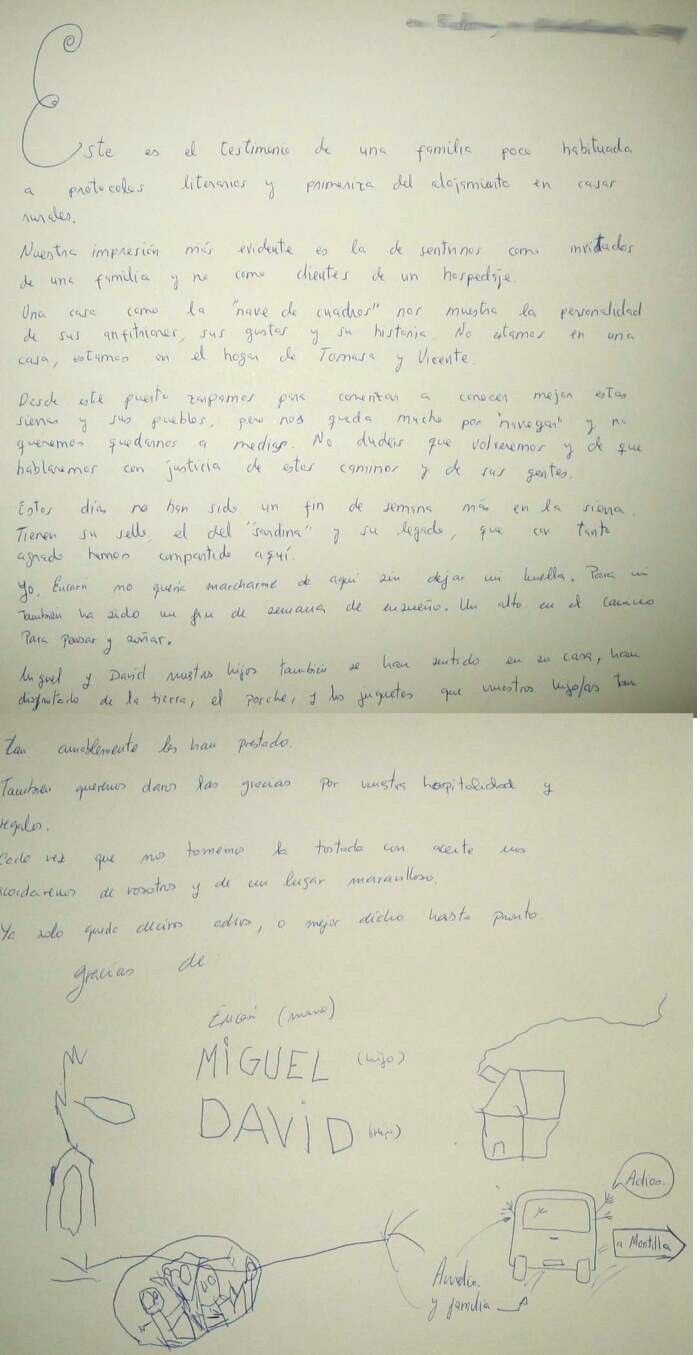 Este es el testimonio de una familia poco habituada
a protocolos literarios y primeriza del alojamiento en casas
rurales.
Nuestra impresión más evidente es la de sentirnos como invitados
de una familia y no como clientes de un hospedaje.
Una casa como la "nave de cuadros" nos muestra la personalidad
de sus anfitriones, sus gustos y su historia. No estamos en una
casa, estamos en el hogar de Tomasa y Vicente.
Desde este puerto zarpamos para comenzar a conocer mejor estas
sierras y sus pueblos, pero nos queda mucho por "navegar" y no
queremos quedarnos a medias. No dudéis que volveremos y de que
hablaremos con justicia de estos caminos y de sus gentes.
Estos días no han sido un fin de semana más en la sierra.
Tienen su sello, el del "sandina" y su legado, que con tanto
agrado hemos compartido aquí.
Yo, Encarn no quería marcharme de aquí sin dejar mi huella. Para mi
también ha sido un fin de semana de ensueño. Un alto en el camino
para pensar y soñar.
Miguel y David nuestros hijos también se han sentido en su casa, han
disfrutado de la tierra, el porche, y los juguetes que vuestros hijo/as tan
tan amablemente les han prestado.
También queremos daros las gracias por vuestra hospitalidad y
regalos.
Cada vez que nos tomemos la tostada con aceite nos
acordaremos de vosotros y de un lugar maravilloso.
Ya solo queda deciros adios, o mejor dicho hasta pronto.
gracias de:
Encarn (mama)
MIGUEL (hijo)
DAVID (hijo)
Adios..
a Montilla
y familia